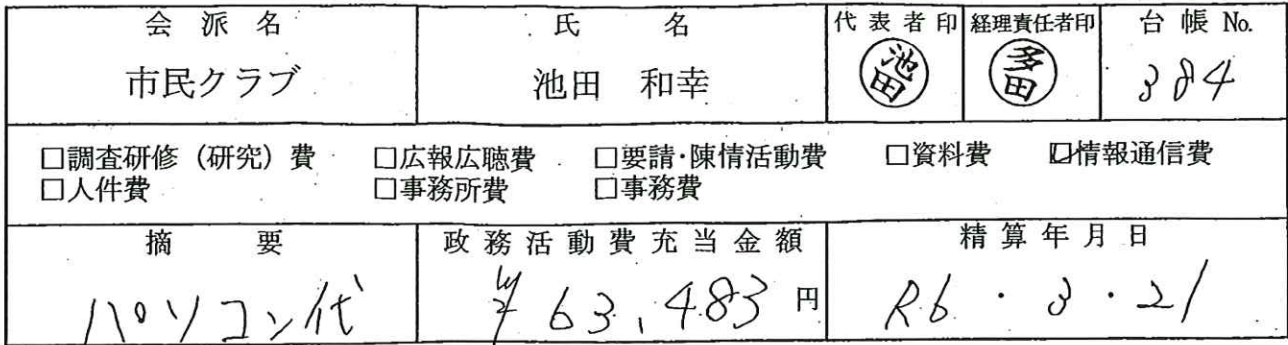 会派名 氏名 代表者印 経理責任者印 台帳No.
市民クラブ 池田 和幸 池田 多田 384
□調査研修(研究)費 □広報広聴費 □要請・陳情活動費 □資料費 ☑情報通信費
□人件費 □事務所費 □事務費
摘要 政務活動費充当金額 精算年月日
パソコン代 ¥63,483円 R6・3・21